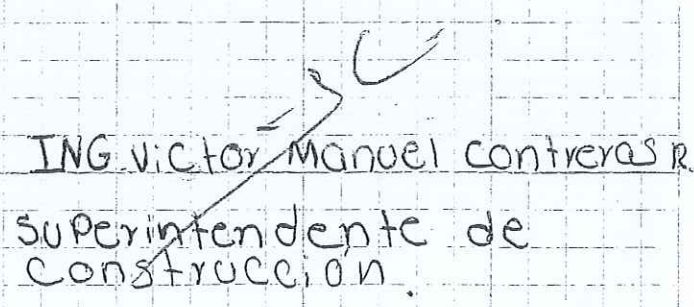 ING. Victor Manuel Contreras R.
Superintendente de
Construcción.